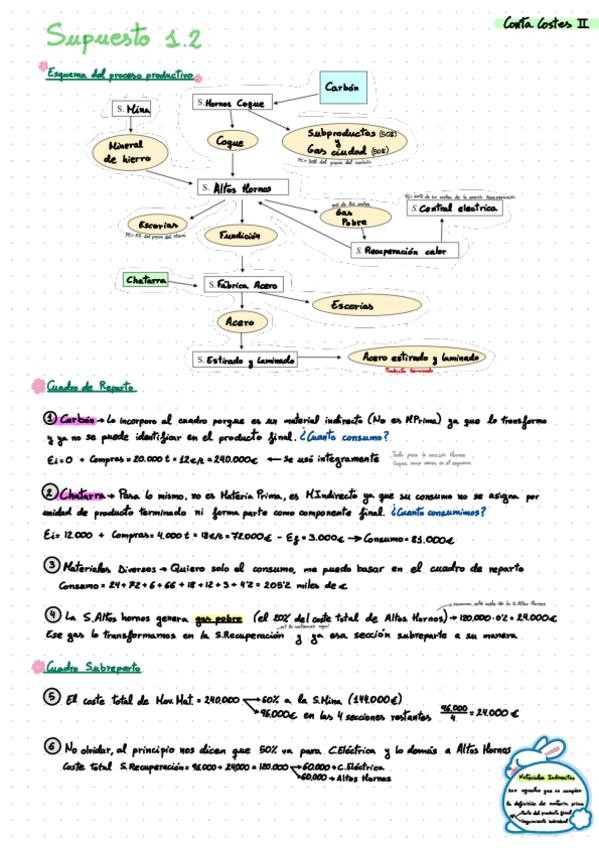 Conta Costes II
Supuesto 1.2
Esquema del proceso productivo
Carbón
S. Mina
S. Hornos Coque
Mineral
de hierro
Coque
Subproductos (50%)
y
Gas ciudad (50%)
S. Altos Hornos
Escorias
Fundición
Gas
Pobre
S. Central electrica
S. Recuperación calor
Chatarra
S. Fábrica Acero
Escorias
Acero
S. Estirado y Laminado
Acero estirado y laminado
Producto terminado
Cuadro de Reparto
1 Carbón → Lo incorporo al cuadro porque es un material indirecto (No es MPrima) ya que lo transformo
y ya no se puede identificar en el producto final. ¿Cuanto consumo?
Ei=0 + Compras = 20.000 t = 12€/t = 240.000€ ← Se usó integramente
2 Chatarra → Pasa lo mismo, no es Materia Prima, es M.Indirecto ya que su consumo no se asigna por
unidad de producto terminado ni forma parte como componente final. ¿Cuanto consumimos?
Ei= 12.000 + Compras= 4.000 t = 18€/t = 72000€ - Ef = 3.000€ → Consumo= 81.000€
3 Materiales Diversos → Quiero solo el consumo, me puedo basar en el cuadro de reparto
Consumo = 24+72+6+66+18+12+3+4'2 = 205'2 miles de €
4 La S.Altos hornos genera gas pobre (el 20% del coste total de Altos Hornos) → 120.000·0'2 = 24.000€
Ese gas lo transformamos en la S.Recuperación y ya esa sección subreparte a su manera
Cuadro Subreparto
5 El coste total de Mov.Mat. = 240.000 → 60% a la S.Mina (144.000€)
→ 96.000€ en las 4 secciones restantes 96.000/4 = 24.000€
6 No olvidar, al principio nos dicen que 50% va para C.Eléctrica y lo demás a Altos Hornos
Coste total S.Recuperación = 96.000 + 24.000 = 120.000 → 60.000 → C.Eléctrica
→ 60.000 → Altos Hornos
Materiales Indirectos
Son aquellos que no cumplen
la definición de materia prima
Parte del producto final
Seguimiento individual